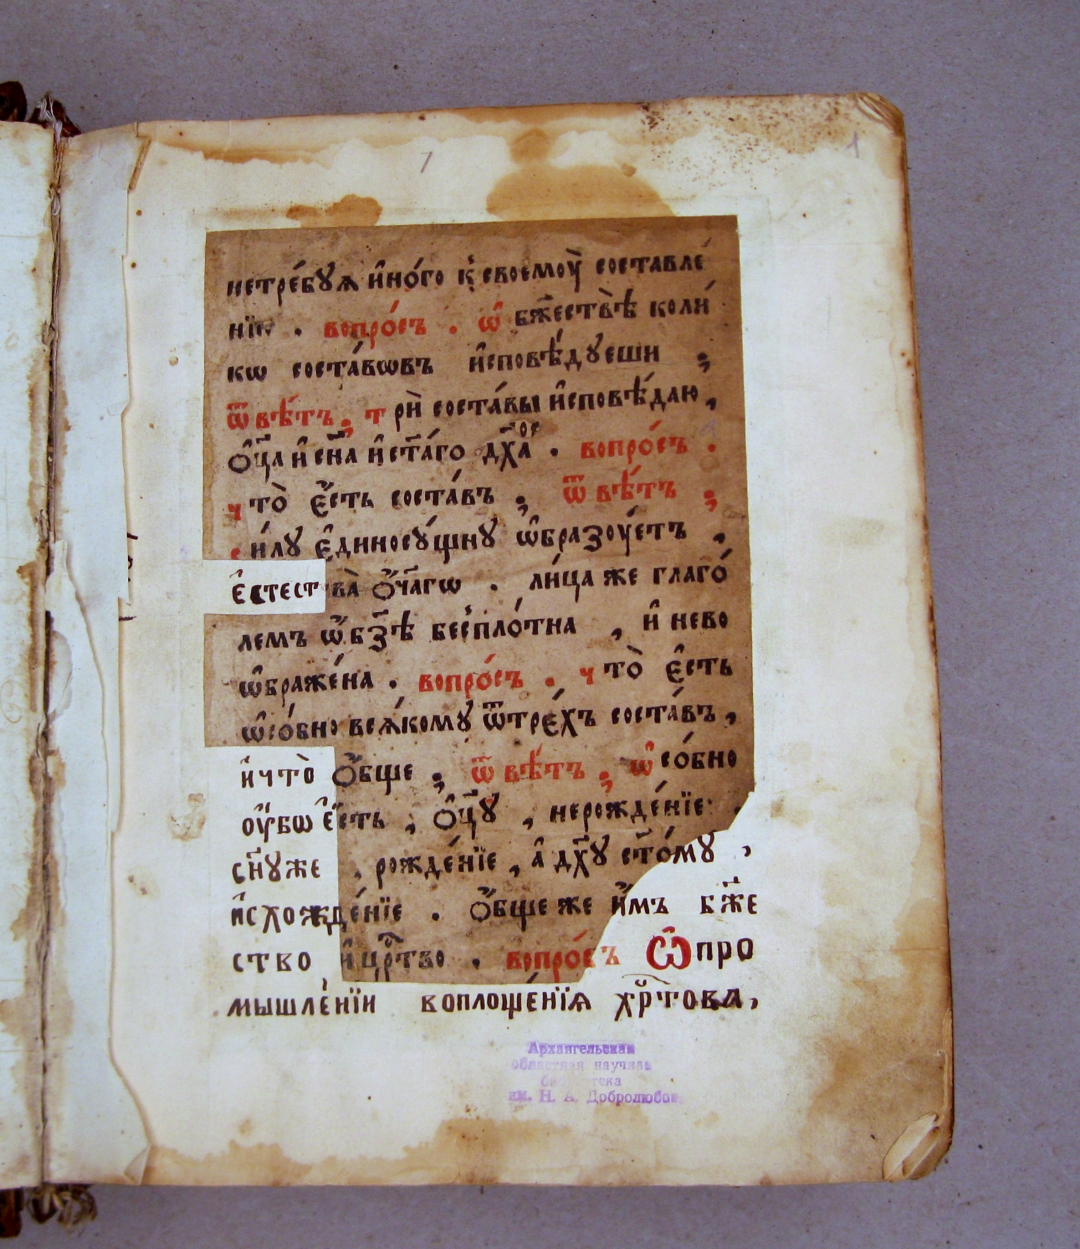 7
1
нетре́бꙋѧ и҆но́го к̾своемоу̀ составле́
нїю . вопро́съ . ѡ҆ бж҃ествѣ̀ коли́
кѡ соста́вѡвъ и҆сповѣ́дꙋеши ;
ѿвѣ́тъ ; трѝ соста́вы и҆сповѣ́даю ,
ѻ҆ц҃а и҆ сн҃а и҆ ст҃а́го дх҃а . вопро́съ .
что̀ є҆́сть соста́въ ; ѿвѣ́тъ ;
си́лꙋ є҆диносꙋ́щнꙋ ѡ҆бразꙋ́етъ ,
є҆стества̀ ѻ҆́ч҃агѡ . ли́ца же глаго́
лемъ ѡ҆ бз҃ѣ беспло́тна , и҆ нево
ѡ҆браже́на . вопро́съ . что̀ є҆́сть
ѡ҆со́бно всѧ́комꙋ ѿ тре́хъ соста́въ ,
и҆ что̀ ѻ҆́бще ; ѿвѣ́тъ ; ѡ҆со́бно
оу҆́бѡ є҆́сть , ѻ҆ц҃ꙋ̀ , нерожде́нїе
сн҃ꙋже , рожде́нїе , а҆ дх҃ꙋ ст҃о́мꙋ ,
и҆схожде́нїе . ѻ҆́бще же и҆̀мъ бж҃е
ство и҆ црⷭ҇тво . вопро́съ ѡ҆ про
мышле́нїи воплоще́нїѧ хрⷭ҇това ,
Архангельская
областная научная
библиотека
им. Н. А. Добролюбова